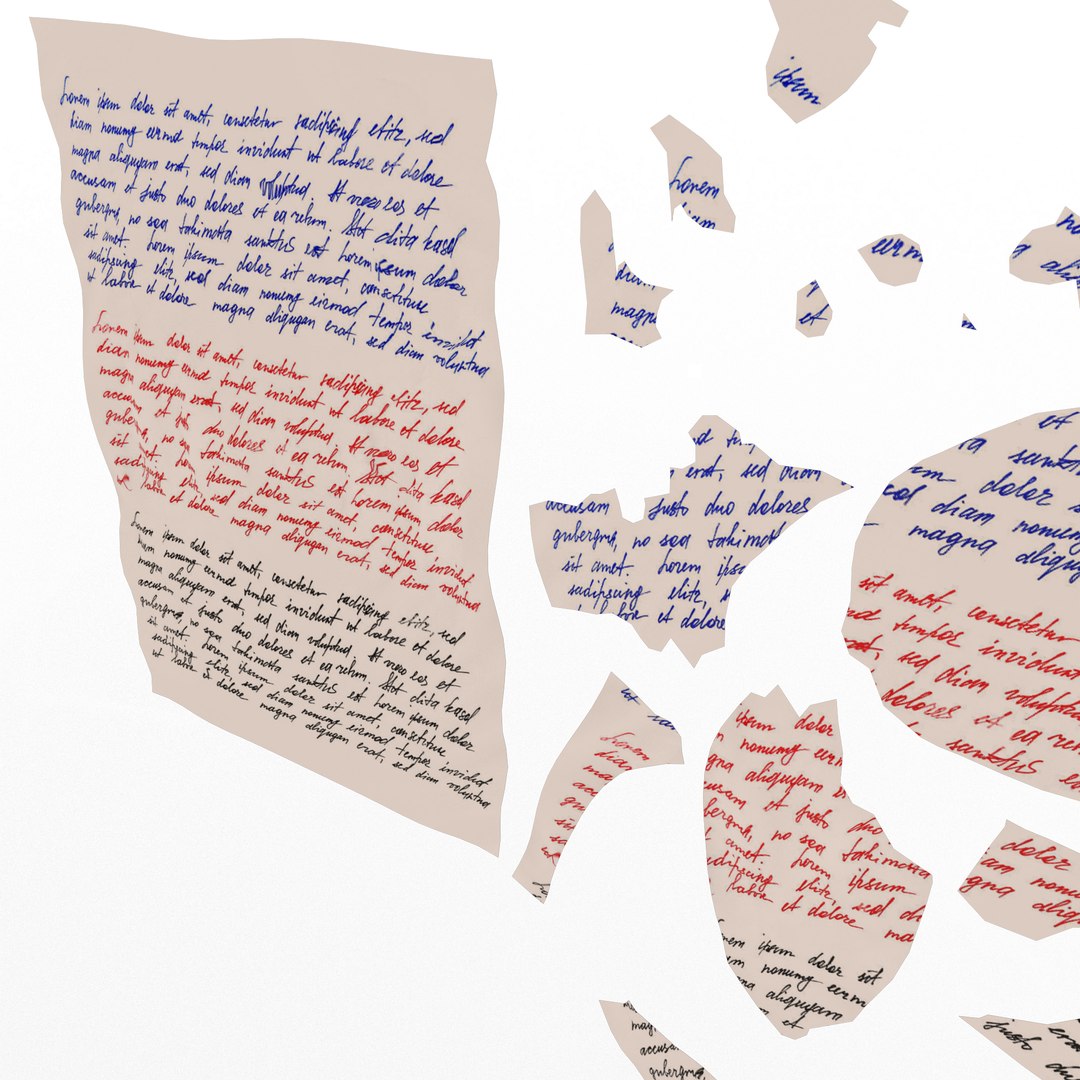 Lorem ipsum dolor sit amet, consetetur sadipscing elitr, sed
diam nonumy eirmod tempor invidunt ut labore et dolore
magna aliquyam erat, sed diam voluptua. At vero eos et
accusam et justo duo dolores et ea rebum. Stet clita kasd
gubergren, no sea takimata sanctus est Lorem ipsum dolor
sit amet. Lorem ipsum dolor sit amet, consetetur
sadipscing elitr, sed diam nonumy eirmod tempor invidunt
ut labore et dolore magna aliquyam erat, sed diam voluptua
Lorem ipsum dolor sit amet, consetetur sadipscing elitr, sed
diam nonumy eirmod tempor invidunt ut labore et dolore
magna aliquyam erat, sed diam voluptua. At vero eos et
accusam et justo duo dolores et ea rebum. Stet clita kasd
gubergren, no sea takimata sanctus est Lorem ipsum dolor
sit amet. Lorem ipsum dolor sit amet, consetetur
sadipscing elitr, sed diam nonumy eirmod tempor invidunt
labore et dolore magna aliquyam erat, sed diam voluptua
Lorem ipsum dolor sit amet, consetetur sadipscing elitr, sed
diam nonumy eirmod tempor invidunt ut labore et dolore
magna aliquyam erat, sed diam voluptua. At vero eos et
accusam et justo duo dolores et ea rebum. Stet clita kasd
gubergren, no sea takimata sanctus est Lorem ipsum dolor
sit amet. Lorem ipsum dolor sit amet, consetetur
sadipscing elitr, sed diam nonumy eirmod tempor invidunt
ut labore et dolore magna aliquyam erat, sed diam voluptua
ipsum
Lorem
magna
et
erat, sed diam
accusam justo duo dolores
no sea takimat
sit amet. Lorem ipso
sadipscing elitr, s
et dolore
et
dolor
sed diam nonumy
magna aliquy
sit amet, consetetur
tempor invidunt
sed diam voluptua
dolores et ea re
sanctus
Lorem
ipsum dolor
nonumy eirm
aliquyam
et justo duo
no sea takimata
amet. Lorem ipsum
elitr, sed di
labore et dolore ma
ipsum dolor sit
nonumy eirm
aliquyam
et
dolor
justo